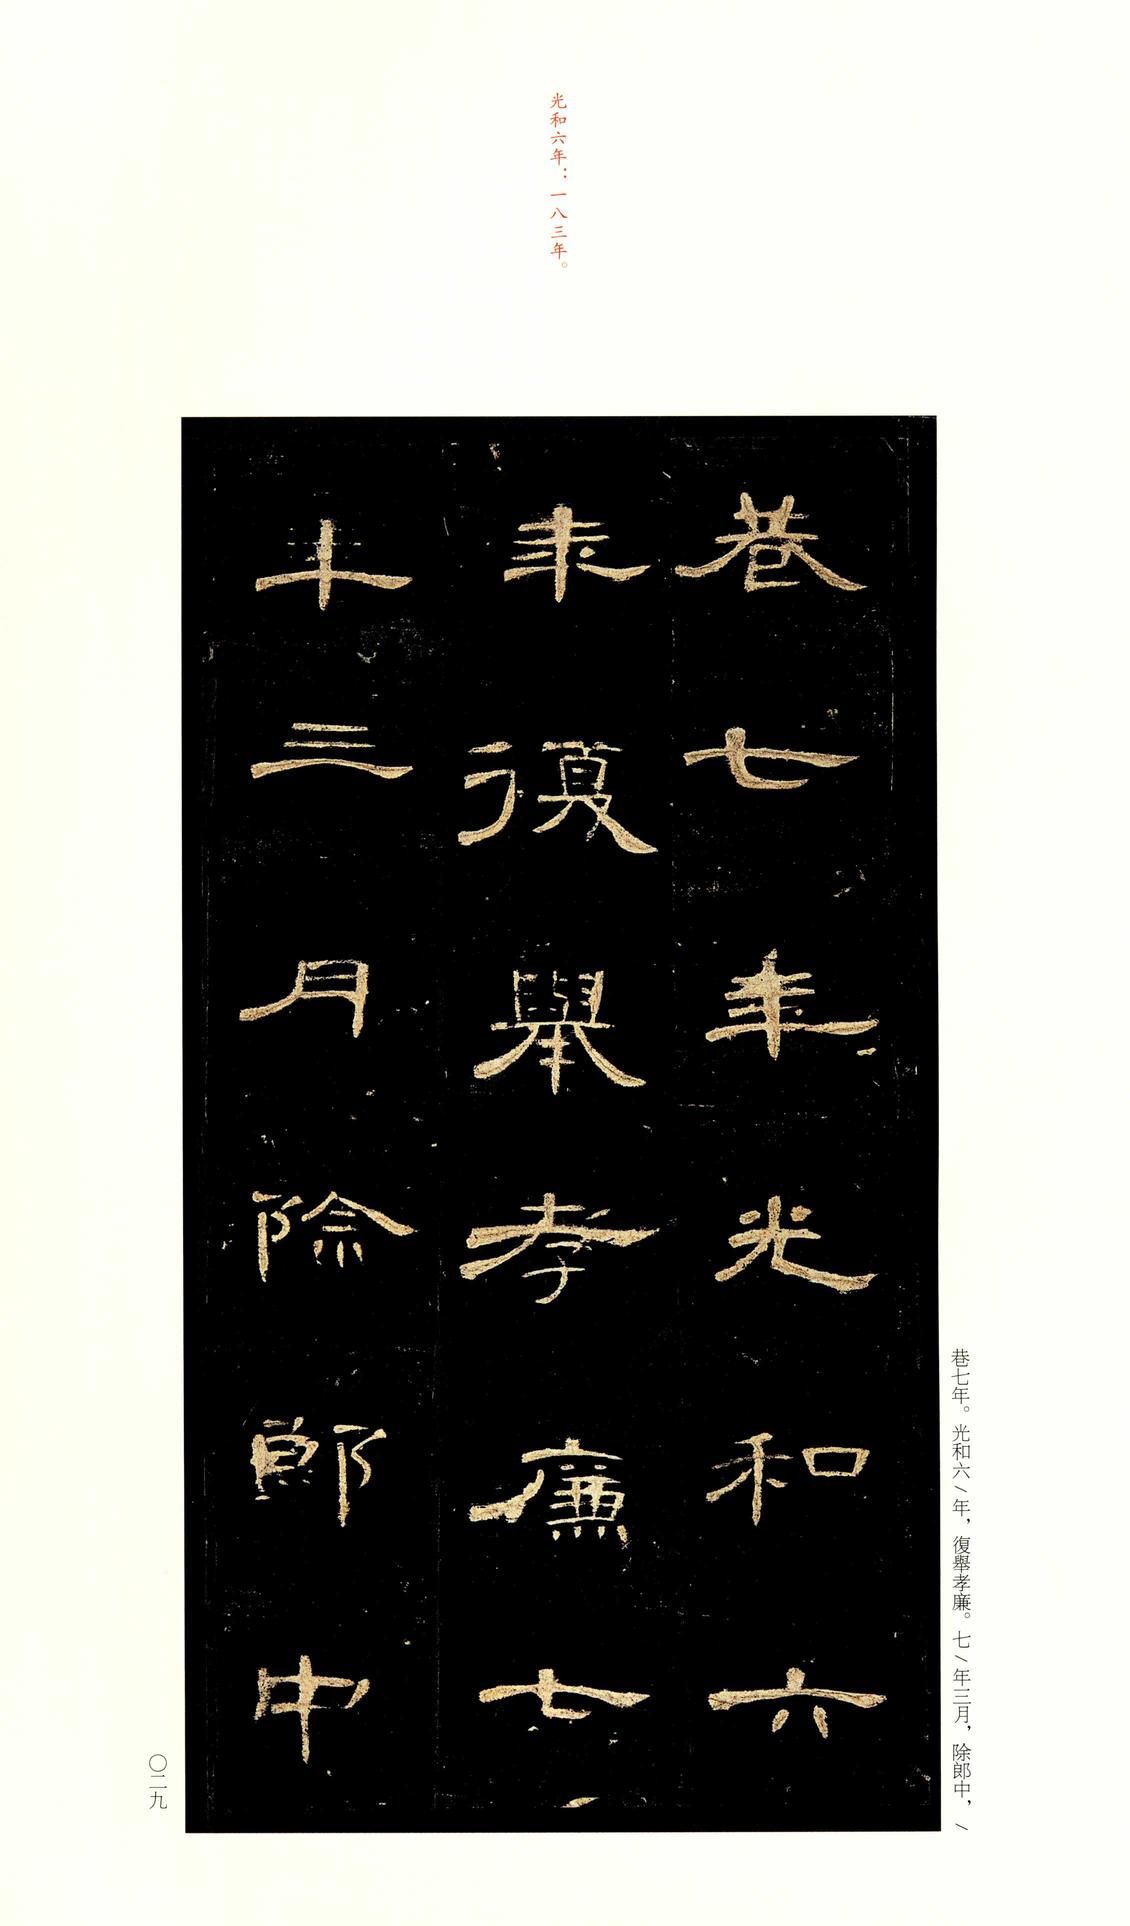 光和六年：一八三年。
巷七年光和六
年復舉孝廉七
年三月除郎中
巷七年。光和六\年，復舉孝廉。七\年三月，除郎中，\
〇二九